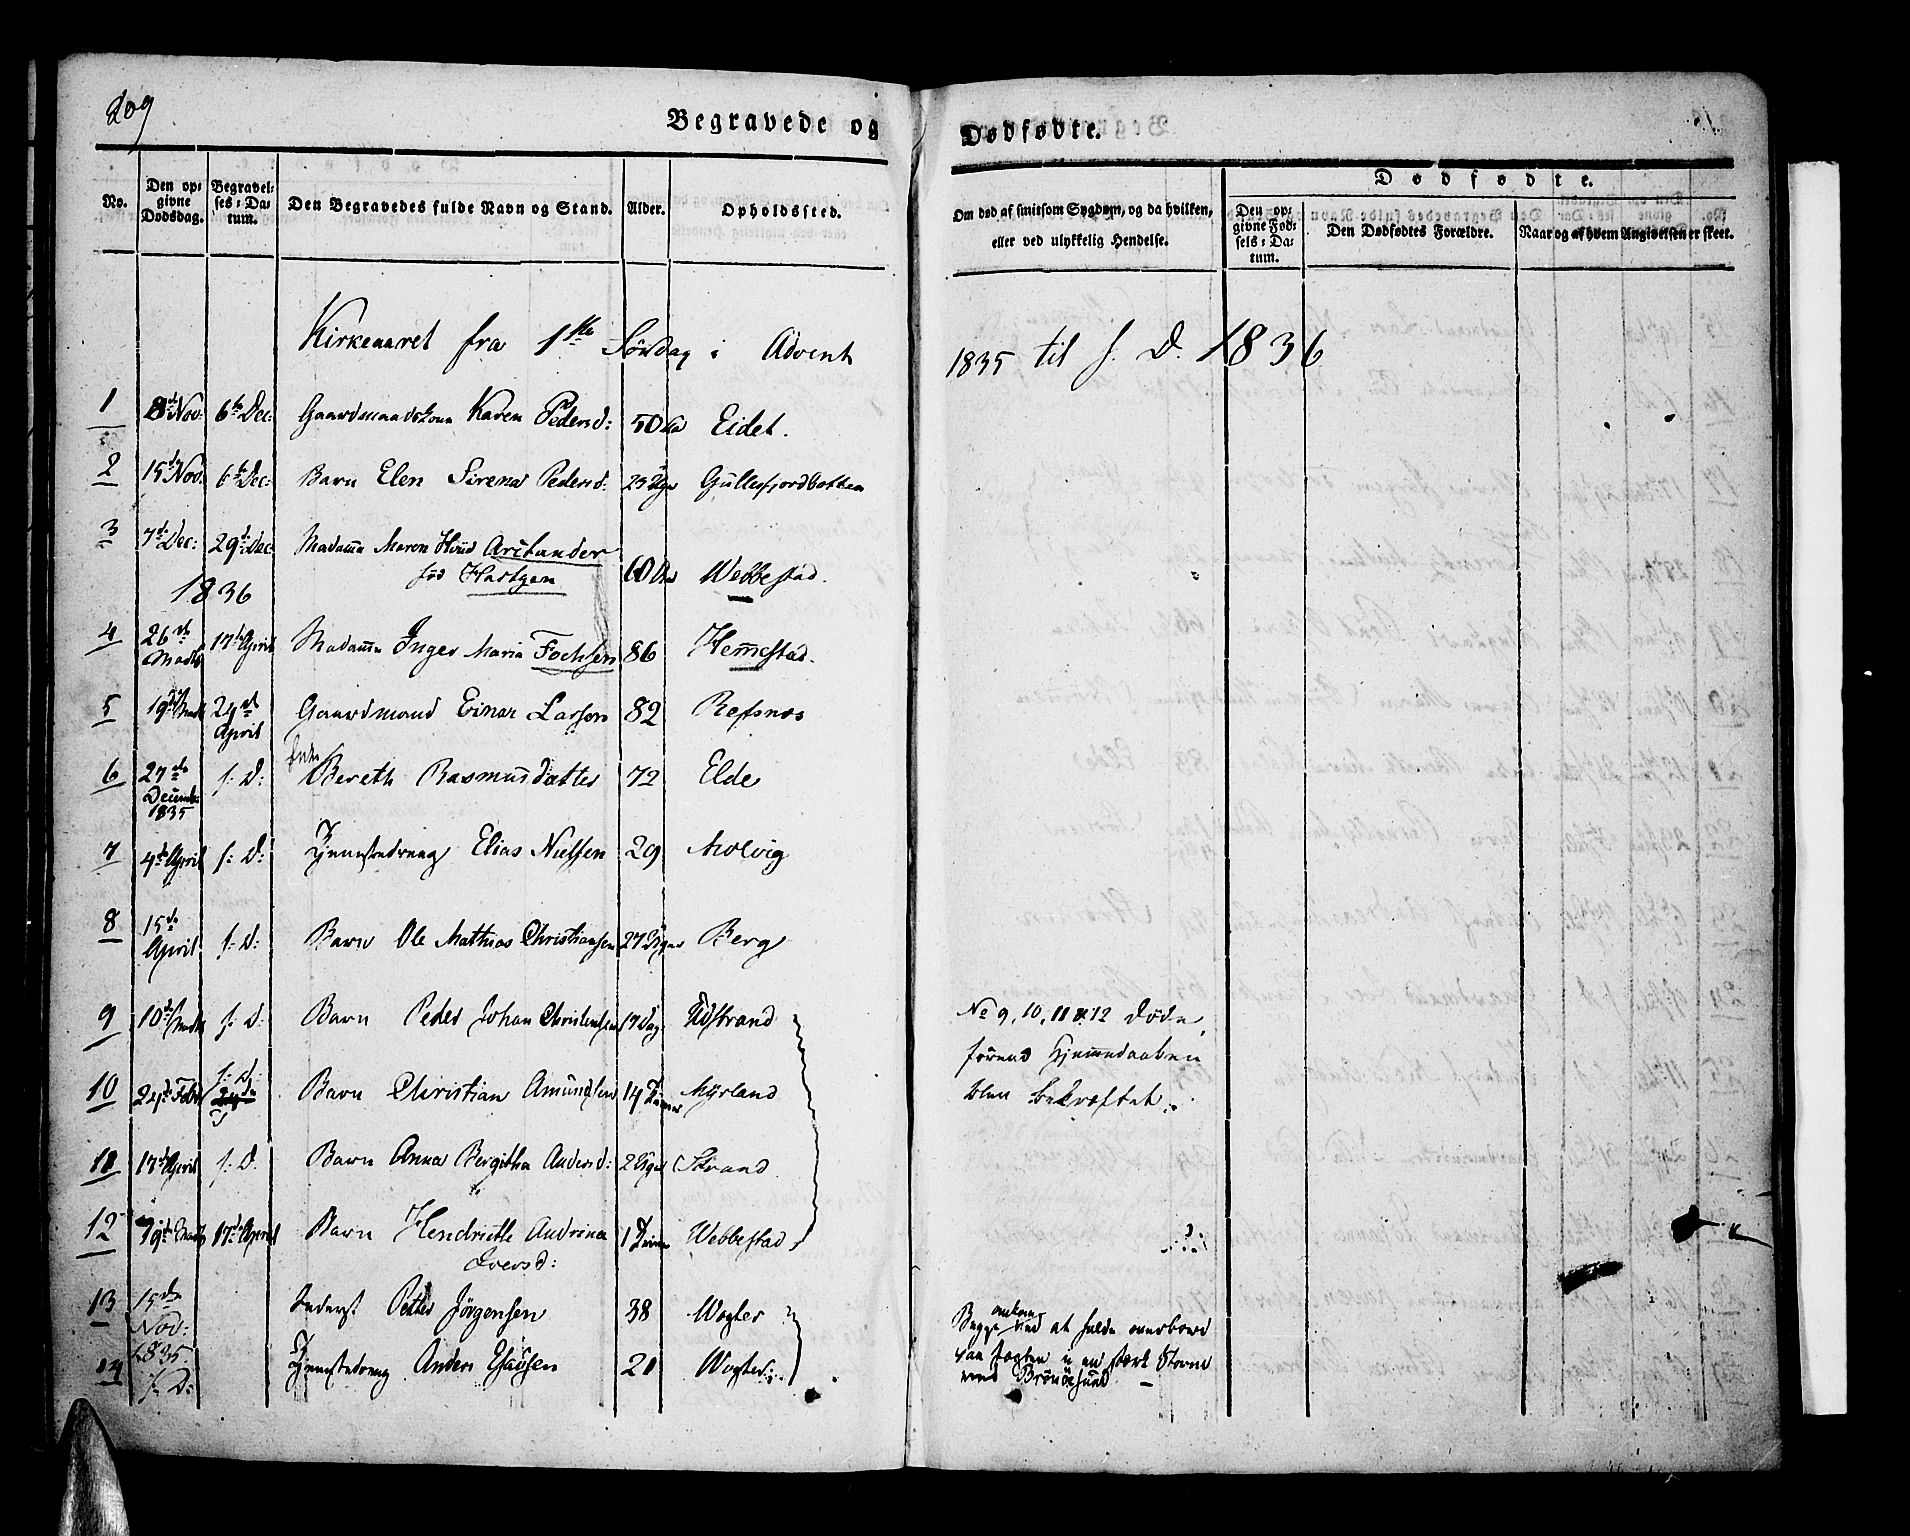 209
Begravede og Dødfødte.
No. Den opgivne Dødsdag. Begravelses-Datum. Den Begravedes fulde Navn og Stand. Alder. Opholdssted. Om død af smitsom Sygdom, og da hvilken, eller ved ulykkelig Hendelse.
Dødfødte.
Den opgivne Fødsels-Datum. Den Dødfødtes Forældre. Naar og af hvem Angivelsen er skeet.
Kirkeaaret fra 1ste Søndag i Advent 1835 til s. D. 1836
1 8de Nov: 6te Dec: Gaardmandskone Karen Pedersd: 50 Eidet.
2 15de Nov: 6te Dec: Barn Elen Sirena Pedersd: 23 Uger Gullesfjordbotten
3 7de Dec: 29de Dec: Madame Maren Hvid Arctander
fød Hartgen 60 Webbestad.
1836
4 26de Marts 17de April Madame Inger Maria Fochsen 86 Hemmestad.
5 19de Marts 24de April Gaardmand Einar Larsen 82 Refsnes
6 27de December 1835 s: D: Enke Bereth Rasmusdatter 72 Elde
7 4de April s: D: Tjenestedreng Elias Nielsen 29 Molvig
8 15de April s: D: Barn Ole Mathias Christiansen 27 Uger Berg
9 10de Marts s: D: Barn Peder Johan Christensen 17 Dag Udstrand
No 9, 10, 11 & 12 døde,
førend Hjemmedaaben
blev bekræftet.
10 24de Febr s: D: Barn Christian Amundsen 14 Timer Myrland
11 17de April s: D. Barn Anna Bergitha Andersd: 2 Uger Strand
12 19de Marts 17de April Barn Hendriette Andrina
Iversd: 1 Webbestad
13 15de Nov: 1835. Inderst Petter Jørgensen 38 Wogter
14 s: D: Tjenestedreng Anders Esaisen 21 Wogter
Begge omkom ved at falde overbord
fra Jægten i en stærk Storm
ved Brønøesund.